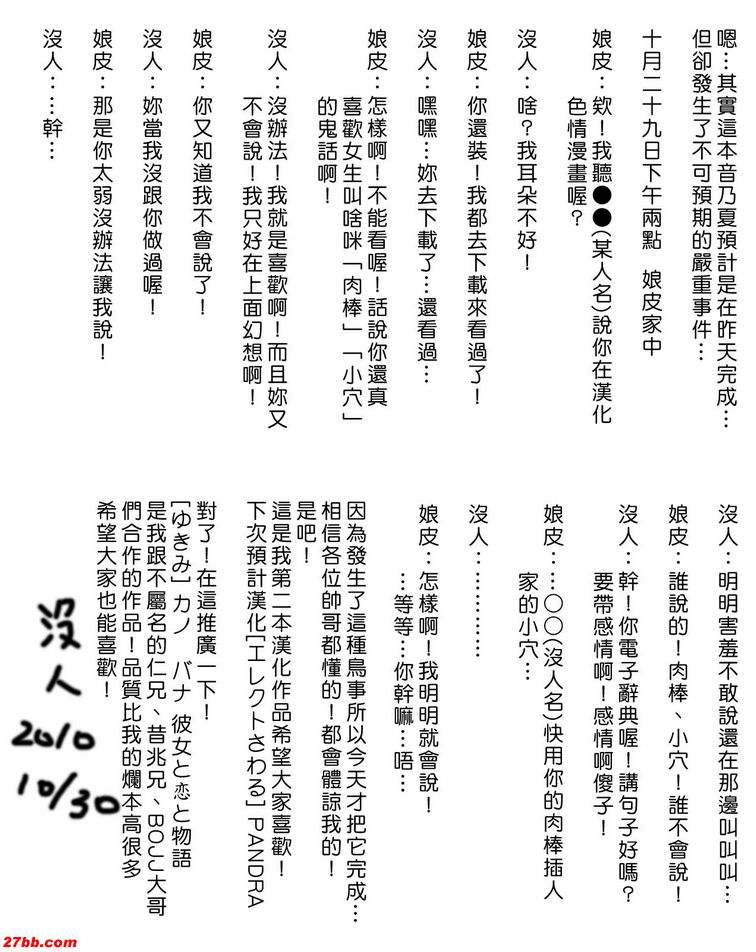 嗯…其實這本音乃夏預計是在昨天完成…
但卻發生了不可預期的嚴重事件…
十月二十九日下午兩點　娘皮家中
娘皮：欸！我聽●●(某人名)說你在漢化
色情漫畫喔？
沒人：啥？我耳朵不好！
娘皮：你還裝！我都去下載來看過了！
沒人：嘿嘿…妳去下載了…還看過…
娘皮：怎樣啊！不能看喔！話說你還真
喜歡女生叫啥咪「肉棒」「小穴」
的鬼話啊！
沒人：沒辦法！我就是喜歡啊！而且妳又
不會說！我只好在上面幻想啊！
娘皮：你又知道我不會說了！
沒人：妳當我沒跟你做過喔！
娘皮：那是你太弱沒辦法讓我說！
沒人：…幹…
沒人：明明害羞不敢說還在那邊叫叫叫…
娘皮：誰說的！肉棒、小穴！誰不會說！
沒人：幹！你電子辭典喔！講句子好嗎？
要帶感情啊！感情啊傻子！
娘皮：…○○(沒人名)快用你的肉棒插人
家的小穴…
沒人：…………
娘皮：怎樣啊！我明明就會說！
…等等…你幹嘛…唔…
因為發生了這種鳥事所以今天才把它完成…
相信各位帥哥都懂的！都會體諒我的！
是吧！
這是我第二本漢化作品希望大家喜歡！
下次預計漢化[エレクトさわる] PANDRA
對了！在這推廣一下！
[ゆきみ] カノ　バナ 彼女と恋と物語
是我跟不屬名的仁兄、昔兆兄、BOJJ大哥
們合作的作品！品質比我的爛本高很多
希望大家也能喜歡！
沒人
2010
10/30
27bb.com